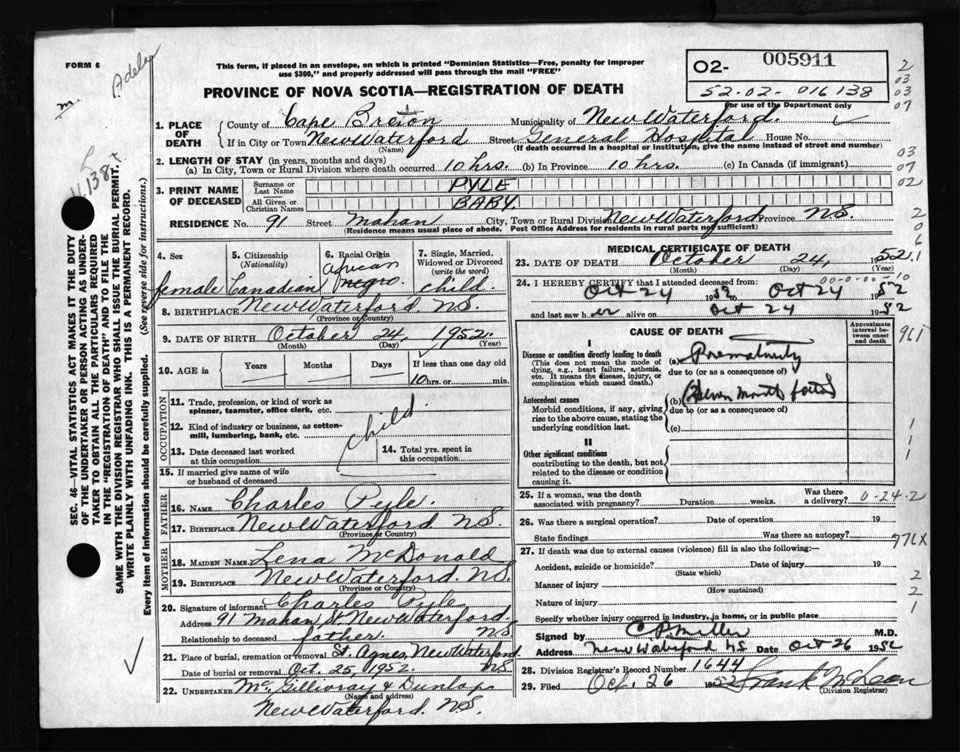 FORM 6
This form, if placed in an envelope, on which is printed "Dominion Statistics—Free, penalty for improper
use $300," and properly addressed will pass through the mail "FREE"
PROVINCE OF NOVA SCOTIA—REGISTRATION OF DEATH
02- 005911
52-02-016138
For use of the Department only
1. PLACE OF DEATH
County of Cape Breton Municipality of New Waterford
If in City or Town New Waterford Street General Hospital House No.
(Name) (If death occurred in a hospital or institution, give the name instead of street and number)
2. LENGTH OF STAY (in years, months and days)
(a) In City, Town or Rural Division where death occurred 10 hrs. (b) In Province 10 hrs. (c) In Canada (if immigrant)
3. PRINT NAME OF DECEASED
Surname or Last Name PYLE
All Given or Christian Names BABY
RESIDENCE No. 91 Street Mahan City, Town or Rural Division New Waterford Province N.S.
(Residence means usual place of abode. Post Office Address for residents in rural parts not sufficient)
4. Sex
female
5. Citizenship (Nationality)
Canadian
6. Racial Origin
African
negro.
7. Single, Married, Widowed or Divorced (write the word)
child.
8. BIRTHPLACE New Waterford N.S.
(Province or Country)
9. DATE OF BIRTH October 24, 1952
(Month) (Day) (Year)
10. AGE in Years Months Days If less than one day old
10 hrs. or min.
OCCUPATION
11. Trade, profession, or kind of work as spinner, teamster, office clerk, etc.
12. Kind of industry or business, as cotton-mill, lumbering, bank, etc.
child.
13. Date deceased last worked at this occupation
14. Total yrs. spent in this occupation
15. If married give name of wife or husband of deceased
FATHER
16. Name Charles Pyle.
17. Birthplace New Waterford N.S.
(Province or Country)
MOTHER
18. MAIDEN NAME Lena McDonald
19. BIRTHPLACE New Waterford. N.S.
(Province or Country)
20. Signature of informant Charles Pyle
Address 91 Mahan St. New Waterford N.S.
Relationship to deceased father.
21. Place of burial, cremation or removal St. Agnes, New Waterford N.S.
Date of burial or removal Oct. 25, 1952.
22. UNDERTAKER McGillivray & Dunlap
(Name and address)
New Waterford. N.S.
MEDICAL CERTIFICATE OF DEATH
23. DATE OF DEATH October 24, 1952
(Month) (Day) (Year)
24. I HEREBY CERTIFY that I attended deceased from:
Oct 24 1952 to Oct 24 1952
and last saw her alive on Oct 24 1952
CAUSE OF DEATH
Approximate interval between onset and death
I
Disease or condition directly leading to death
(This does not mean the mode of dying, e.g., heart failure, asthenia, etc. It means the disease, injury, or complication which caused death.)
(a) Prematurity
due to (or as a consequence of)
Antecedent causes
Morbid conditions, if any, giving rise to the above cause, stating the underlying condition last.
(b) Seven month foetus
due to (or as a consequence of)
(c)
II
Other significant conditions
contributing to the death, but not related to the disease or condition causing it.
25. If a woman, was the death associated with pregnancy? Duration weeks. Was there a delivery?
26. Was there a surgical operation? Date of operation 19
State findings Was there an autopsy?
27. If death was due to external causes (violence) fill in also the following:—
Accident, suicide or homicide? Date of injury 19
(State which)
Manner of injury
(How sustained)
Nature of injury
Specify whether injury occurred in industry, in home, or in public place
Signed by C P Miller M.D.
Address New Waterford N.S Date Oct 26 1952
28. Division Registrar's Record Number 1644
29. Filed Oct. 26 1952 Frank McLean
(Division Registrar)
SEC. 46 VITAL STATISTICS ACT MAKES IT THE DUTY
OF THE UNDERTAKER OR PERSON ACTING AS UNDER-
TAKER TO OBTAIN ALL THE PARTICULARS REQUIRED
IN THE "REGISTRATION OF DEATH" AND TO FILE THE
SAME WITH THE DIVISION REGISTRAR WHO SHALL ISSUE THE BURIAL PERMIT.
WRITE PLAINLY WITH UNFADING INK. THIS IS A PERMANENT RECORD.
Every item of information should be carefully supplied. (See reverse side for instructions.)
2
03
03
07
03
07
02
2
0
6
1
10
965
1
1
1
0-24-2
776X
2
2
1